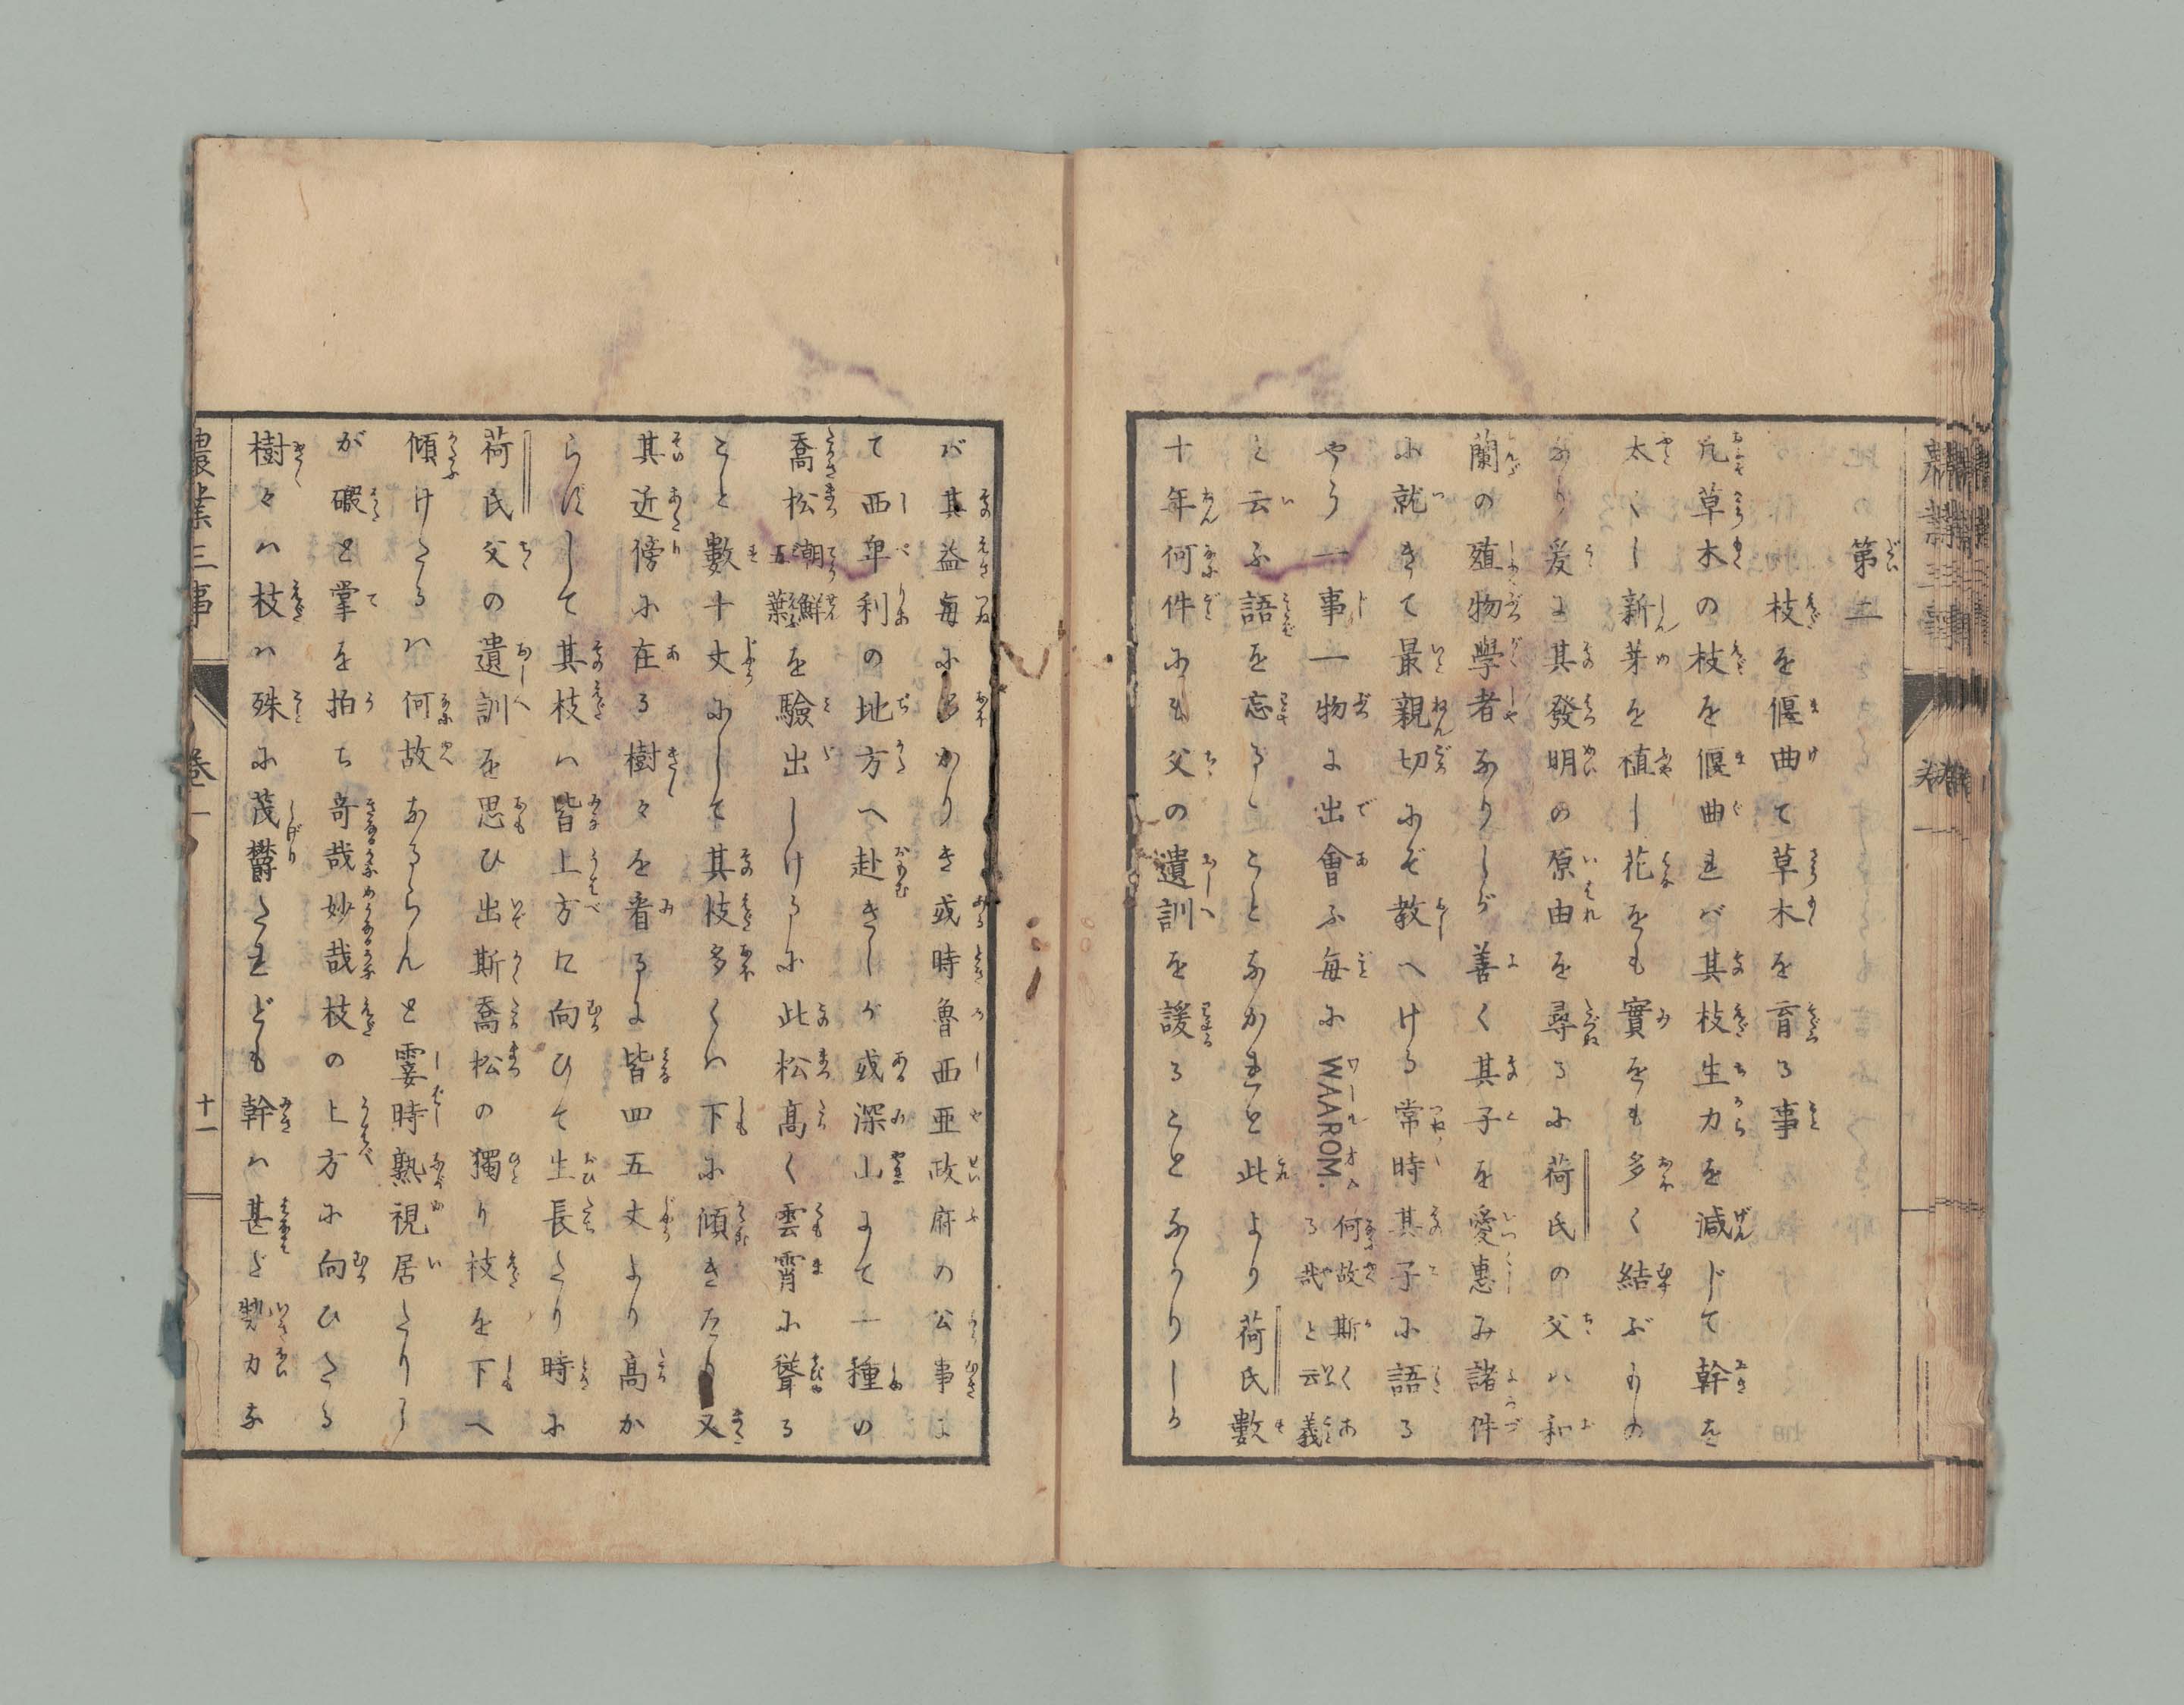 第二
枝を偃曲て草木を育る事
凡草木の枝を偃曲れバ其枝生力を減じて幹を
太くし新芽を植し花をも實をも多く結ぶもの
なり爰に其發明の原由を尋るに荷氏の父ハ和
蘭の殖物學者なりしが善く其子を愛惠み諸件
に就きて最親切にぞ教へける常時其子に語る
やう一事一物に出會ふ毎に WAAROM. 何故斯くあ
る哉と云義
と云ふ語を忘るゝことなかれと此より荷氏數
十年何件にも父の遺訓を諼ることなかりしる
バ其益毎に多かりき或時魯西亜政府の公事に
て西卑利の地方へ赴きしが或深山にて一種の
喬松 潮鮮
五葉 を驗出しけるに此松髙く雲霄に聳る
こと數十丈にして其枝多くハ下に傾きたり又
其近傍に在る樹々を看るに皆四五丈より髙か
らずして其枝ハ皆上方に向ひて生長たり時に
荷氏父の遺訓を思ひ出斯喬松の獨り枝を下へ
傾けたるハ何故あるらんと霎時熟視居たりし
が礑と掌を拍ち竒哉妙哉枝の上方に向ひたる
樹々ハ枝ハ殊に茂欝たれども幹ハ甚ど勢力な
農業三事
卷一
十一